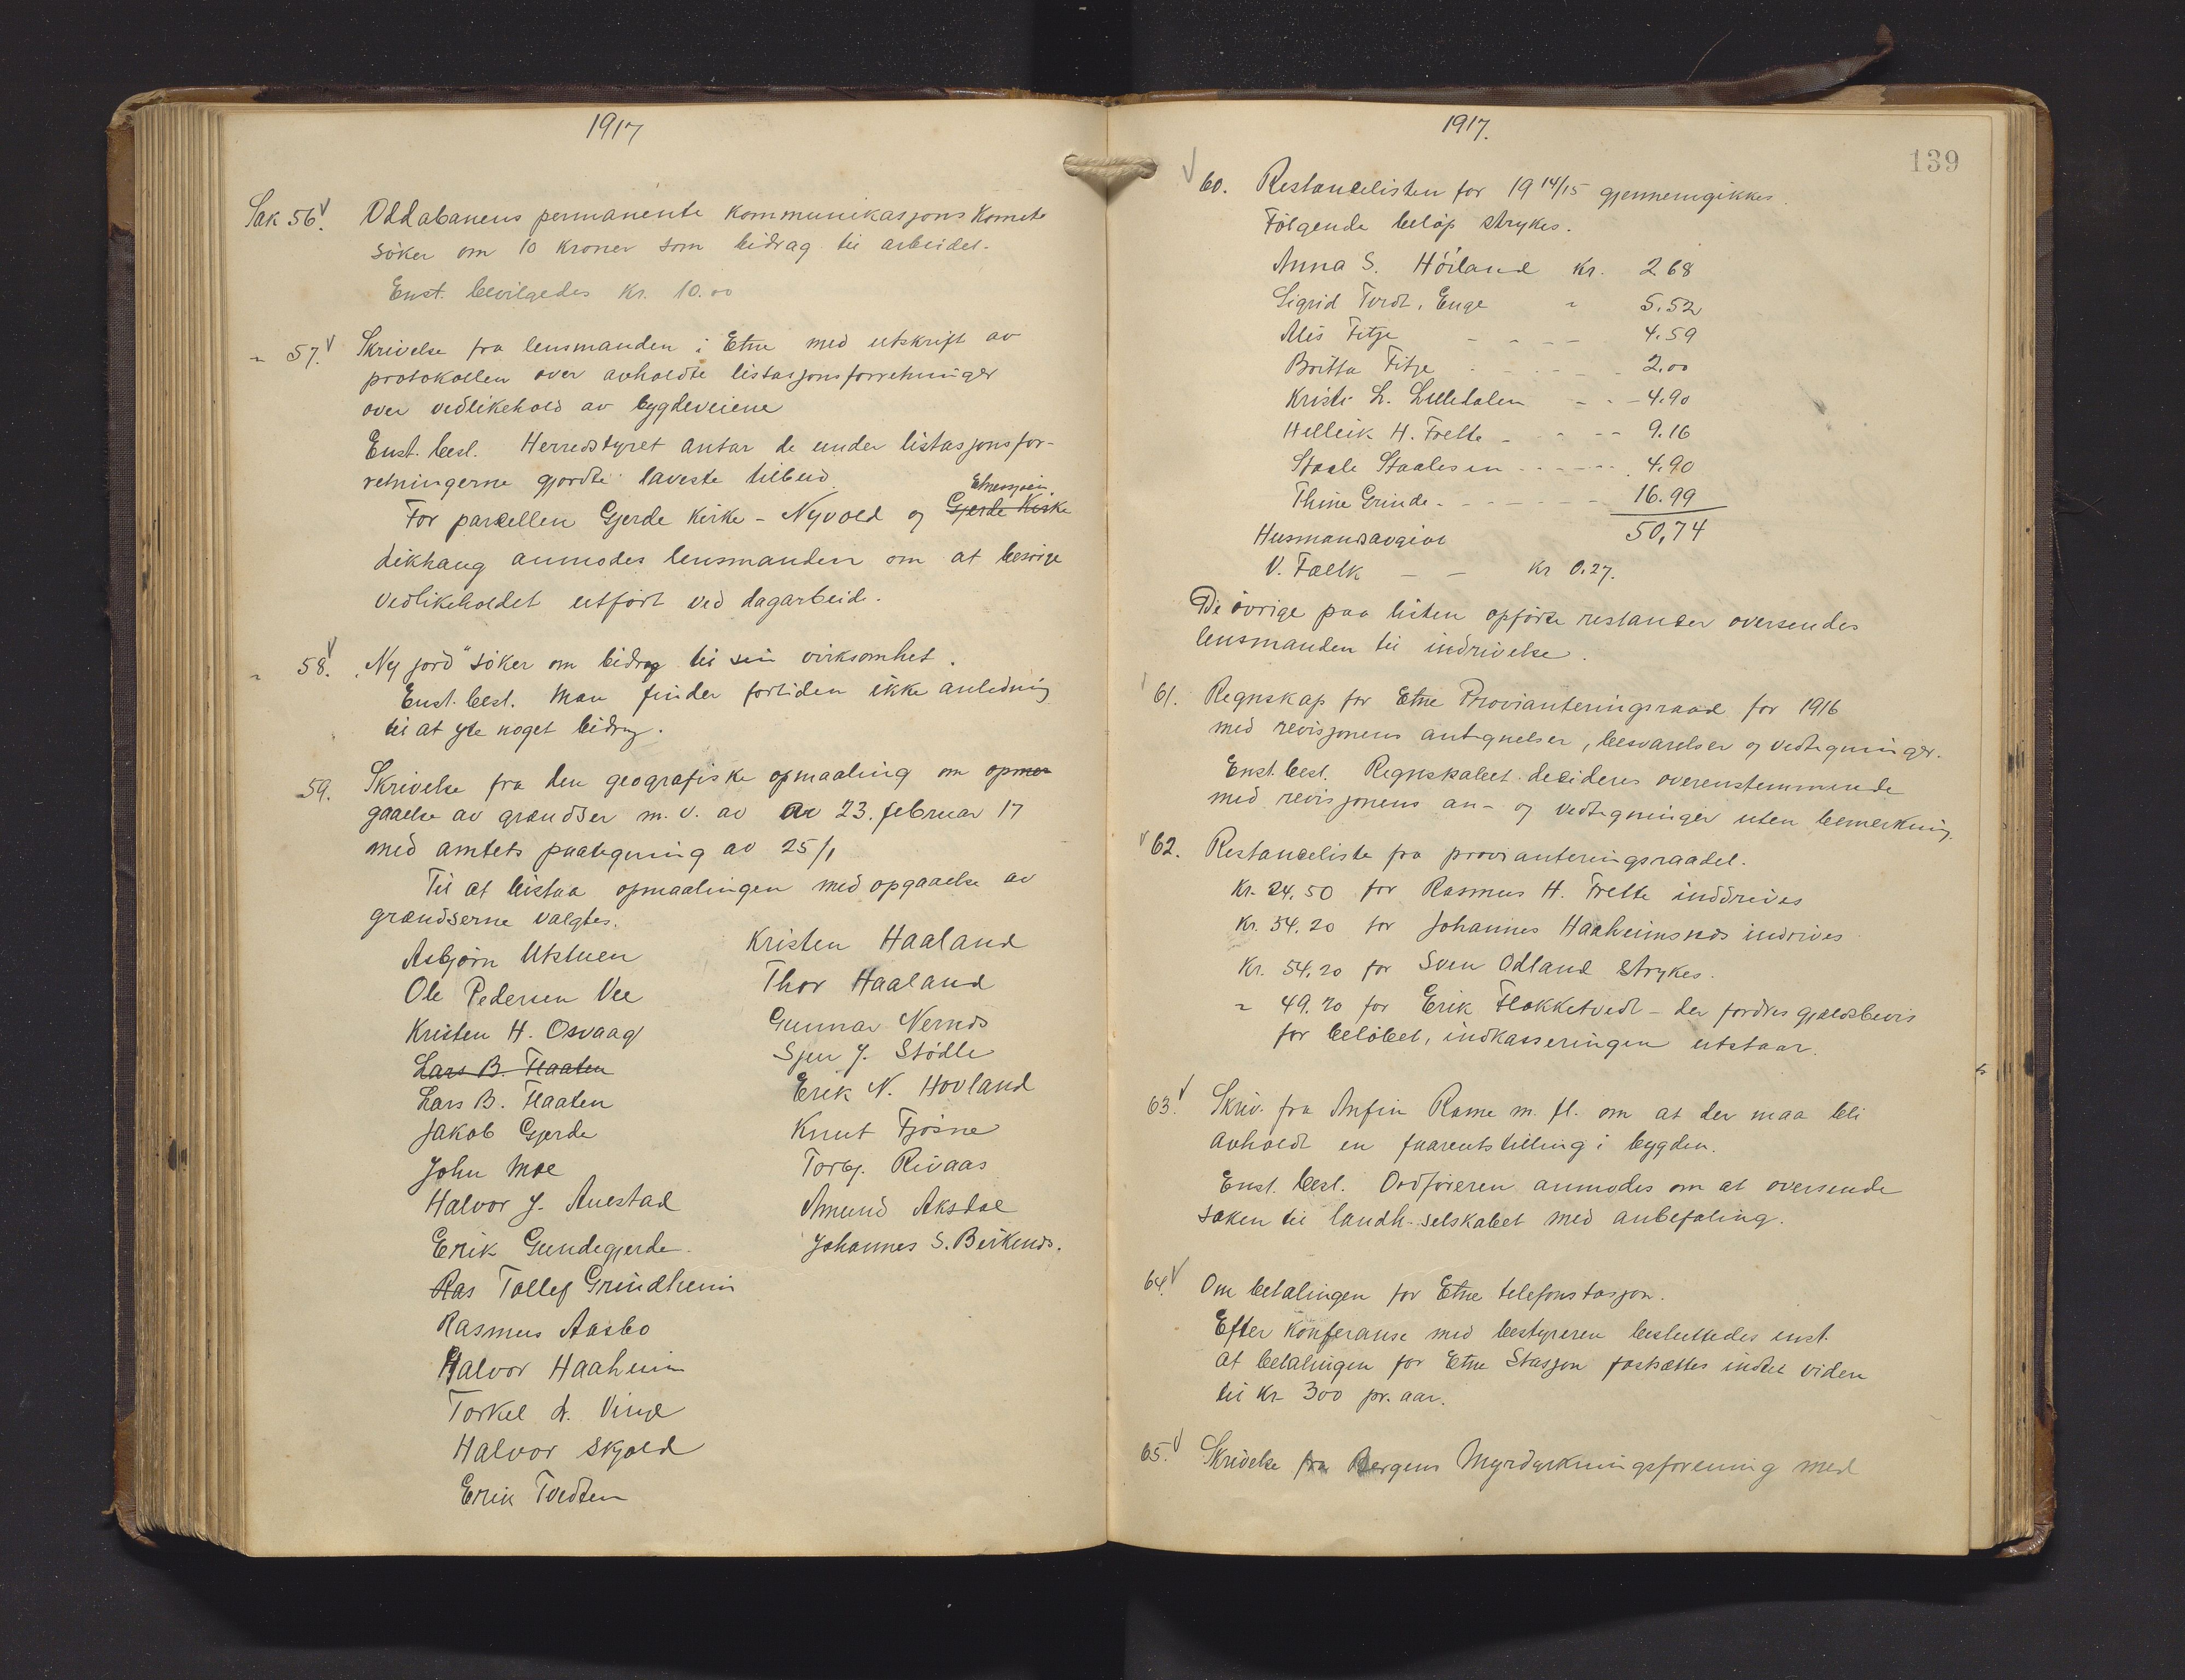 1917
Sak 56. Oddabanens permanente kommunikasjons komite
söker om 10 kroner som bidrag til arbeidet.
Enst. bevilgedes kr. 10.00
" 57. Skrivelse fra lensmanden i Etne med utskrift av
protokollen over avholdte listasjonsforretninger
over vedlikehold av bygdeveiene
Enst. besl. Herredstyret antar de under listasjonsfor-
retningerne gjordte laveste tilbud.
Etnesjøen
For parcellen Gjerde Kirke - Nyvold og Gjerde Kirke
dikhaug anmodes lensmanden om at besörge
vedlikeholdet utfört ved dagarbeide.
" 58. "Ny jord" söker om bidrag til sin virksomhet.
Enst. besl. Man finder fortiden ikke anledning
til at yte noget bidrag.
59. Skrivelse fra den geografiske opmaaling om opmer
gaaelse av grændser m. v. av av 23. februar 17
med amtets paategning av 25/1
Til at bistaa opmaalingen med opgaaelse av
grændserne valgtes.
Asbjörn Utstuen
Ole Pedersen Vee
Kristen H. Osvaag
Lars B. Flaaten
Lars B. Flaaten
Jakob Gjerde
John Moe
Halvor J. Auestad
Erik Gundegjerde.
Ras Tollef Grindheim
Rasmus Aasbo
Halvor Haaheim
Torkel A. Vinje
Halvor Skjold
Erik Tvedten
Kristen Haaland
Thor Haaland
Gunnar Nernes
Sjur J. Stödle
Erik N. Hovland
Knut Fjösne
Torbj. Rivaas
Amund Aksdal
Johannes S. Beikenes.
1917.
139
60. Restancelisten for 1914/15 gjennemgikkes.
Fölgende belöp strykes.
Anna S. Höiland kr. 2 68
Sigrid Tordt. Enge " 5.52
Alis Fitje - - - - 4.59
Britta Fitje - - - - 2.00
Kristi L. Lilledalen - - - 4.90
Helleik H. Frette - - - - 9.16
Staale Staalesen - - - - 4.90
Thine Grinde - - - - - 16.99
50,74
Husmandsavgivt
V. Faelk - - kr 0.27.
De övrige paa listen opförte restancer oversendes
lensmanden til indrivelse.
61. Regnskap for Etne Provianteringsraad for 1916
med revisjonens antegnelser, besvarelser og vedtegninger.
Enst. besl. Regnskabet decideres overenstemmende
med revisjonens an- og vedtegninger uten bemerkning.
62. Restanceliste fra provianteringsraadet.
Kr. 24,50 for Rasmus H. Frette inddrives
Kr. 34.20 for Johannes Haaheimsnes indrives
Kr. 54.20 for Sven Ödland strykes.
" 49.20 for Erik Flokketvedt - der fordres gjældsbevis
for belöbet, indkasseringen utstaar.
63. Skriv. fra Anfin Rame m. fl. om at der maa bli
avholdt en faareutstilling i bygden.
Enst. besl. Ordföreren anmodes om at oversende
saken til landh-selskabet med anbefaling.
64. Om betalingen for Etne telefonstasjon.
Efter konferanse med bestyreren besluttedes enst.
at betalingen for Etne Stasjon fastsættes indtil videre
til Kr 300 pr. aar.
65. Skrivelse fra Bergens Myrdyrkningsforening med